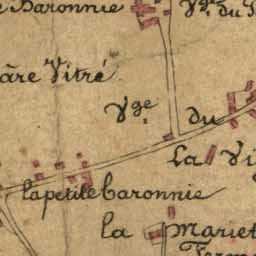 Baronnie Vge du
âre Vitré
Vge du
La Vi
la petite baronnie
la Mariet
Ferme